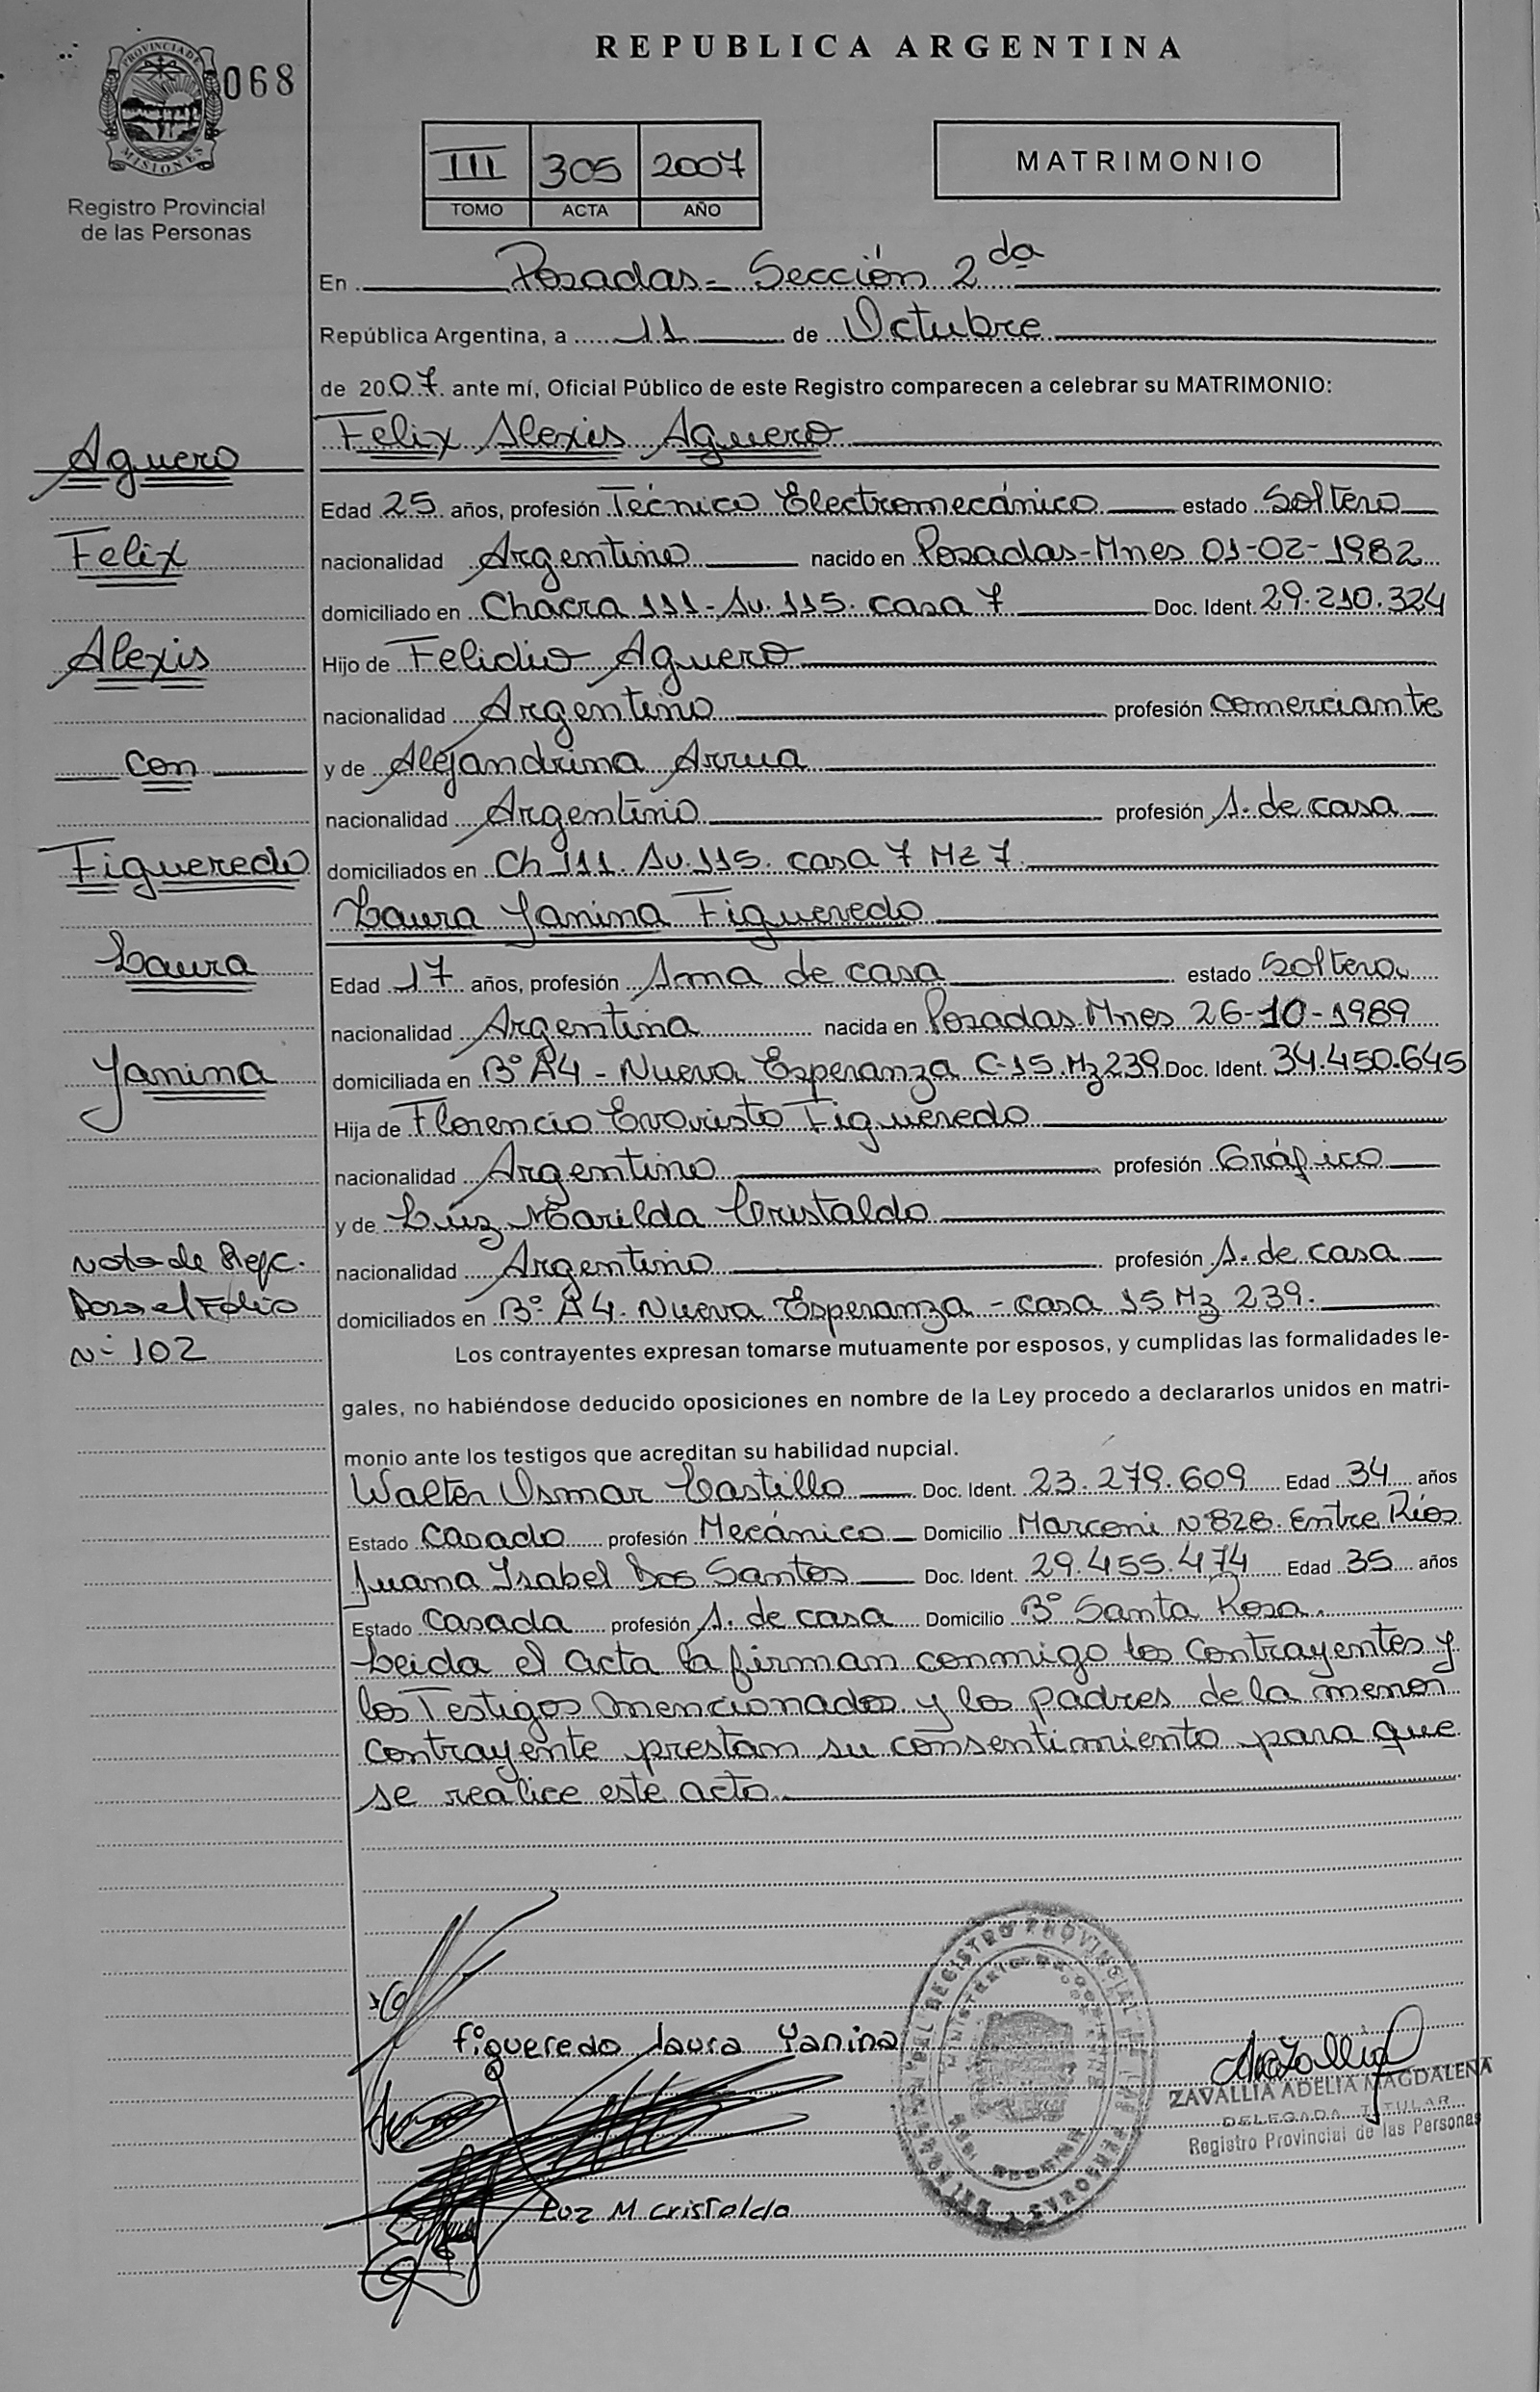 REPUBLICA ARGENTINA
PROVINCIA DE MISIONES
068
Registro Provincial
de las Personas
III 305 2007
TOMO ACTA AÑO
MATRIMONIO
En Posadas - Sección 2da
República Argentina, a 11 de Octubre
de 2007 ante mí, Oficial Público de este Registro comparecen a celebrar su MATRIMONIO:
Felix Alexis Aguero
Edad 25 años, profesión Técnico Electromecánico estado Soltero
nacionalidad Argentino nacido en Posadas-Mnes 01-02-1982
domiciliado en Chacra 111- Av. 115. casa 7 Doc. Ident. 29.210.324
Hijo de Felidio Aguero
nacionalidad Argentino profesión comerciante
y de Alejandrina Arrua
nacionalidad Argentino profesión A. de casa
domiciliados en Ch 111. Av. 115. casa 7 Mz 7.
Laura Yanina Figueredo
Edad 17 años, profesión Ama de casa estado Soltera
nacionalidad Argentina nacida en Posadas Mnes 26-10-1989
domiciliada en B° A4 - Nueva Esperanza C-15. Mz 239 Doc. Ident. 34.450.645
Hija de Florencio Evaristo Figueredo
nacionalidad Argentino profesión Gráfico
y de Lúz Marilda Cristaldo
nacionalidad Argentino profesión A. de casa
domiciliados en B° A4. Nueva Esperanza - casa 15 Mz 239.
Los contrayentes expresan tomarse mutuamente por esposos, y cumplidas las formalidades le-
gales, no habiéndose deducido oposiciones en nombre de la Ley procedo a declararlos unidos en matri-
monio ante los testigos que acreditan su habilidad nupcial.
Walter Osmar Castillo Doc. Ident. 23.279.609 Edad 34 años
Estado Casado profesión Mecánico Domicilio Marconi N° 828. Entre Ríos
Juana Ysabel Dos Santos Doc. Ident. 29.455.474 Edad 35 años
Estado Casada profesión A. de casa Domicilio B° Santa Rosa.
Leida el acta la firman conmigo los contrayentes y
los Testigos mencionados y los padres de la menor
contrayente prestan su consentimiento para que
se realice este acto
Aguero
Felix
Alexis
con
Figueredo
Laura
Yanina
Nota de Refc.
Para el Folio
N° 102
figueredo laura Yanina
Luz M Cristaldo
ZAVALLIA ADELIA MAGDALENA
DELEGADA TITULAR
Registro Provincial de las Personas